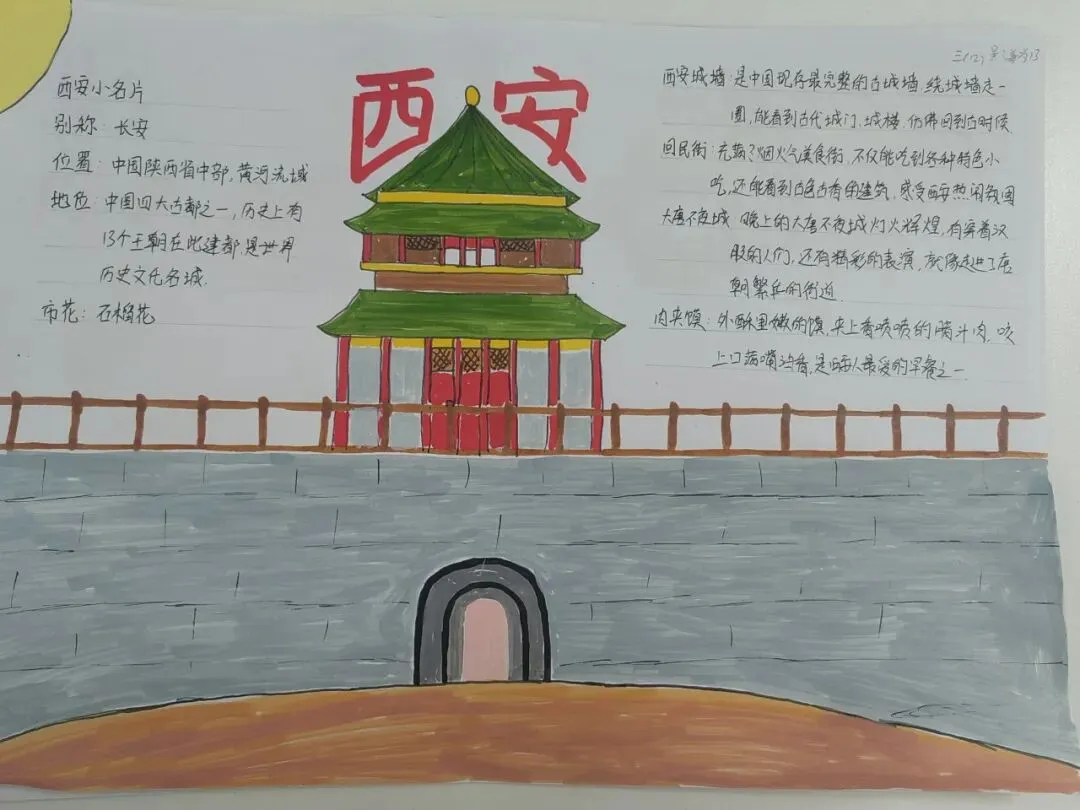 西安
西安小名片
别称：长安
位置：中国陕西省中部，黄河流域
地位：中国四大古都之一，历史上有
13个王朝在此建都，是世界
历史文化名城.
市花：石榴花
三(2)
西安城墙：是中国现存最完整的古城墙，绕城墙走一
圈，能看到古代城门、城楼，仿佛回到古时候.
回民街：充满了烟火气美食街，不仅能吃到各种特色小
吃，还能看到古色古香的建筑，感受西安热闹氛围
大唐不夜城：晚上的大唐不夜城灯火辉煌，有穿着汉
服的人们，还有精彩的表演，就像走进了唐
朝繁华的街道.
肉夹馍：外酥里嫩的馍，夹上香喷喷的腊汁肉，咬
上口满嘴油香，是西安人最爱的早餐之一